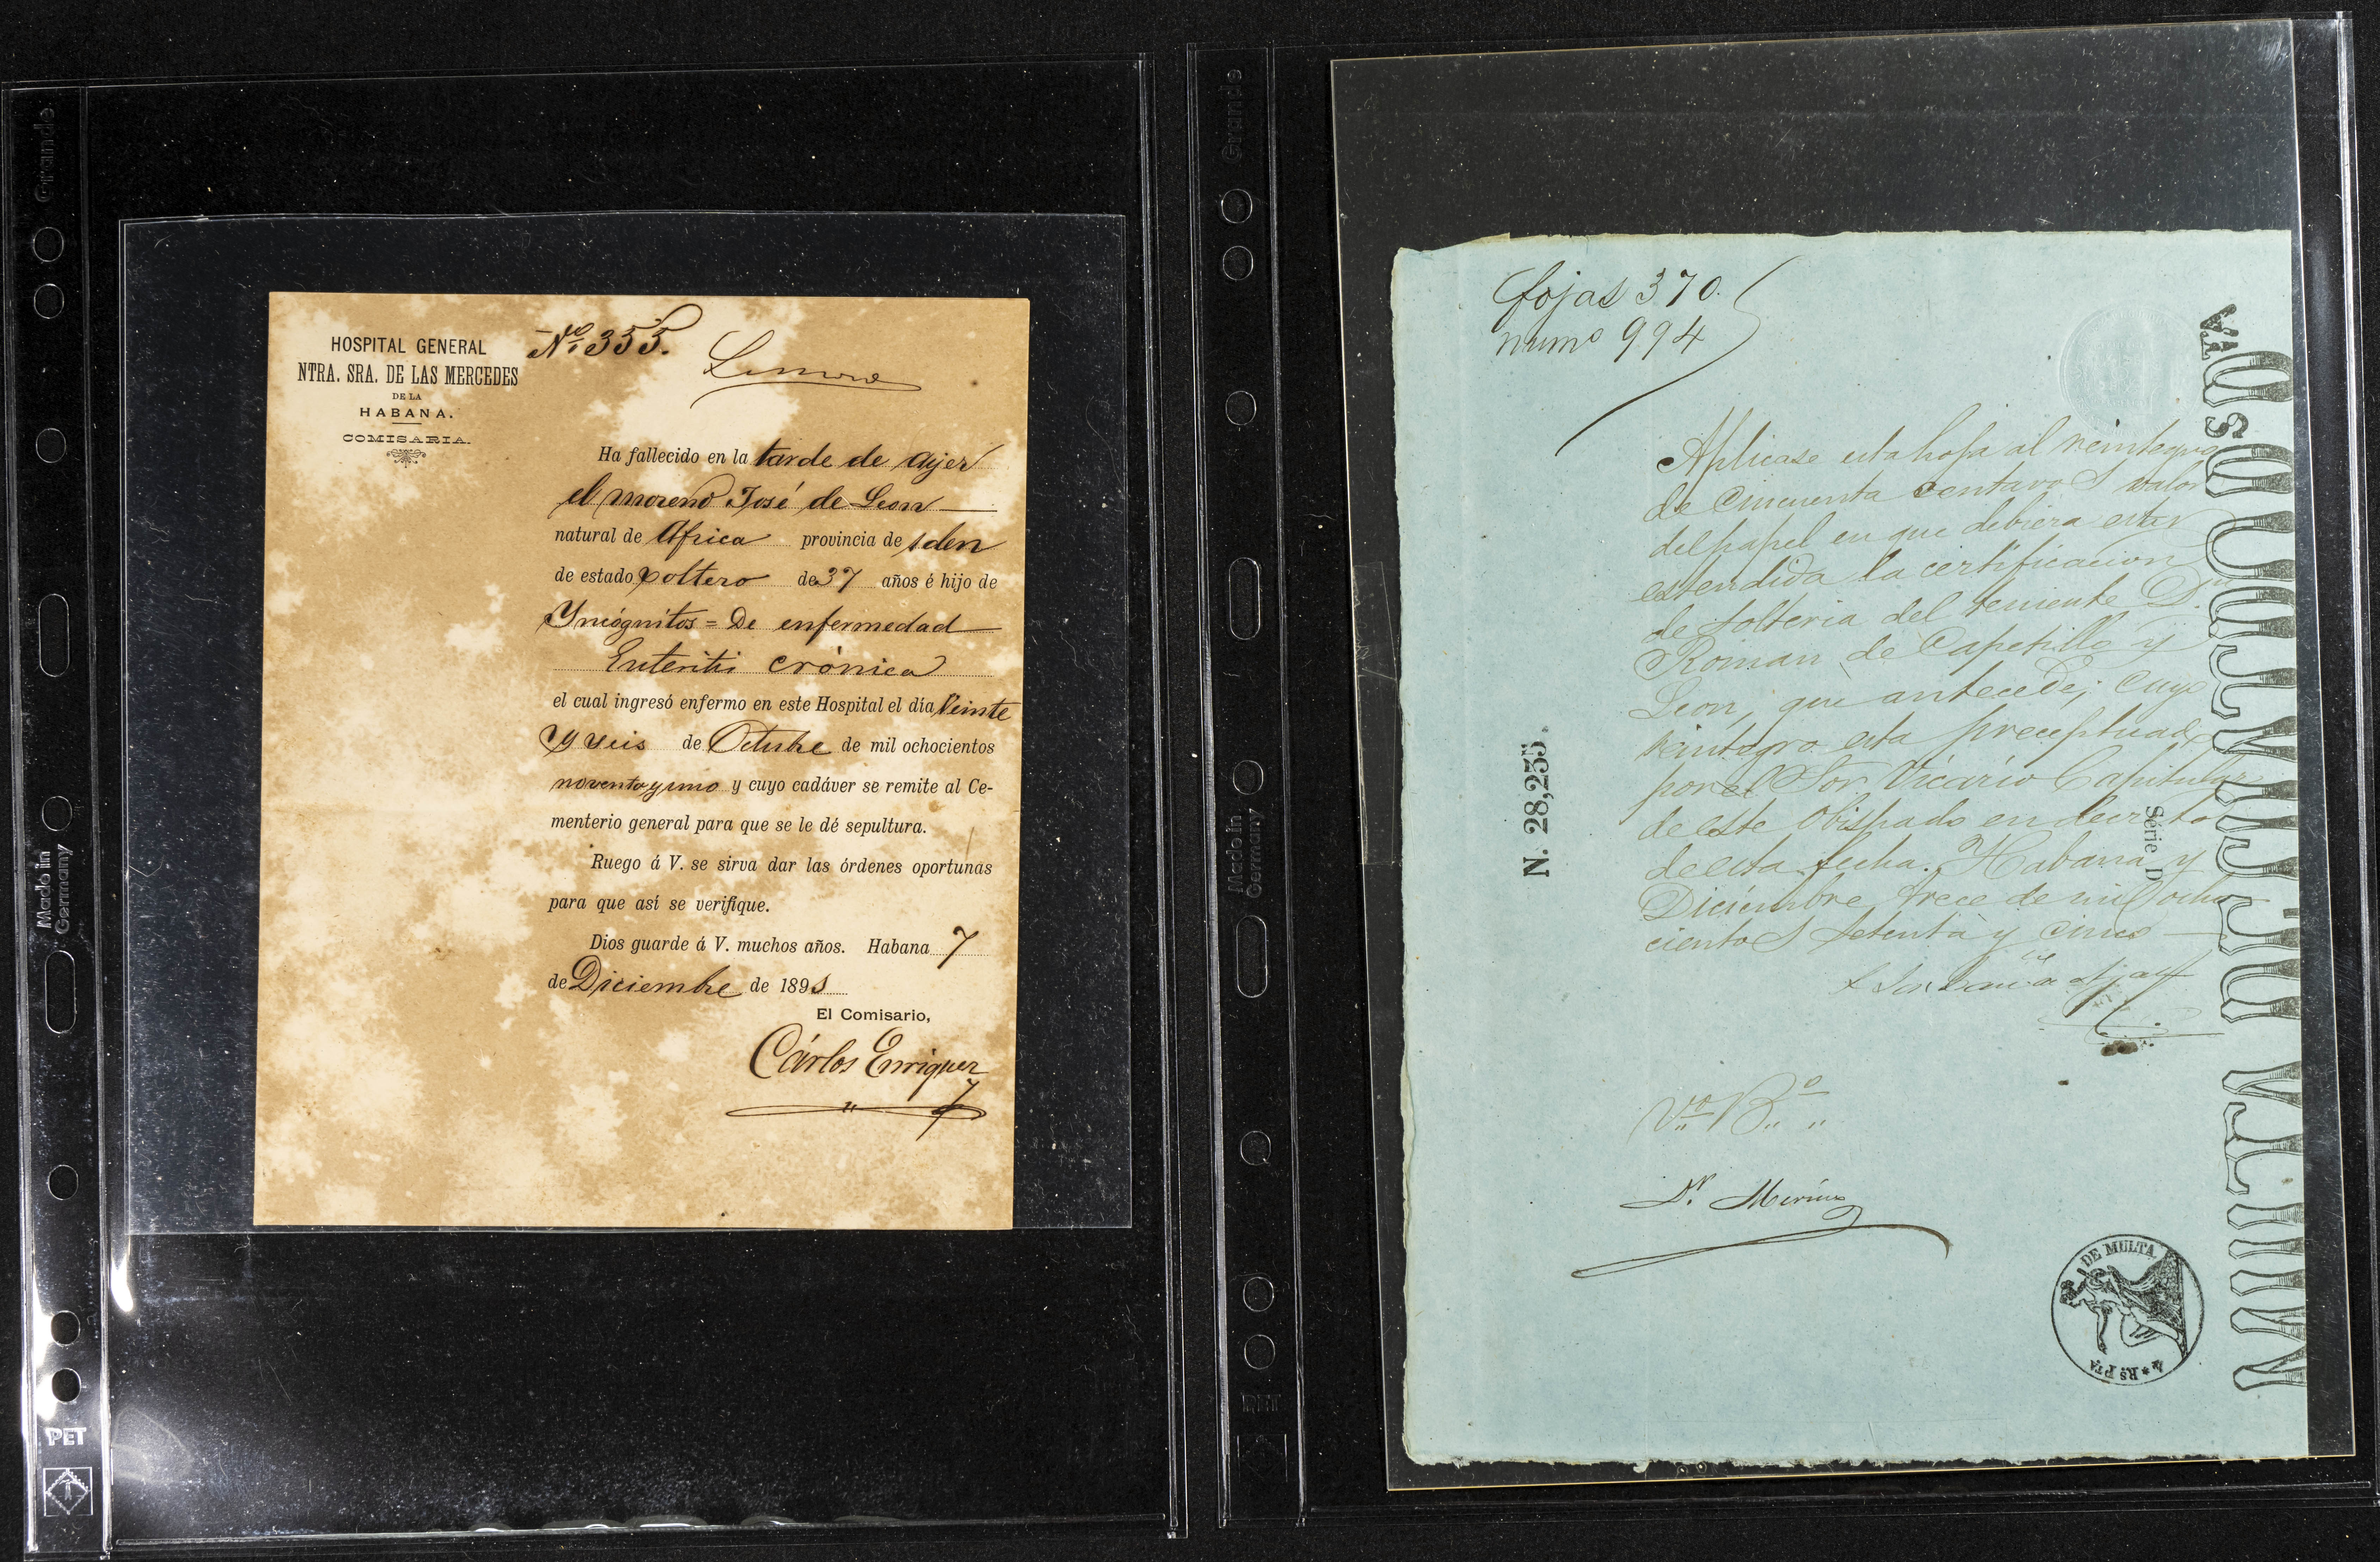 HOSPITAL GENERAL
NTRA. SRA. DE LAS MERCEDES
DE LA
HABANA.
COMISARIA.
No. 353.
Ha fallecido en la tarde de ayer
el moreno José de Leon
natural de Africa provincia de iden
de estado soltero de 37 años é hijo de
Yncógnitos = De enfermedad
Enteriti crónica
el cual ingresó enfermo en este Hospital el día Veinte
y seis de Octubre de mil ochocientos
noventa y uno y cuyo cadáver se remite al Ce-
menterio general para que se le dé sepultura.
Ruego á V. se sirva dar las órdenes oportunas
para que así se verifique.
Dios guarde á V. muchos años. Habana 7
de Diciembre de 1891
El Comisario,
Cárlos Enriquez
fojas 370.
numo 994
Aplicase esta hoja al reintegro
de Cincuenta centavos valor
del papel en que debiera estar
estendida la certificacion
de solteria del teniente Dn.
Roman de Capetillo y
Leon, que antecede; cuyo
reintegro esta preceptuado
por el Sor. Vicario Capitular
de este Obispado en decreto
de esta fecha. Habana y
Diciembre trece de mil ocho
cientos setenta y cinco
Vo. Bo.
Dr. Merino
N. 28,255.
Série D
DE MULTA
4 * RS. PTA
Grande
Made in
Germany
PET
Grande
Made in
Germany
PET